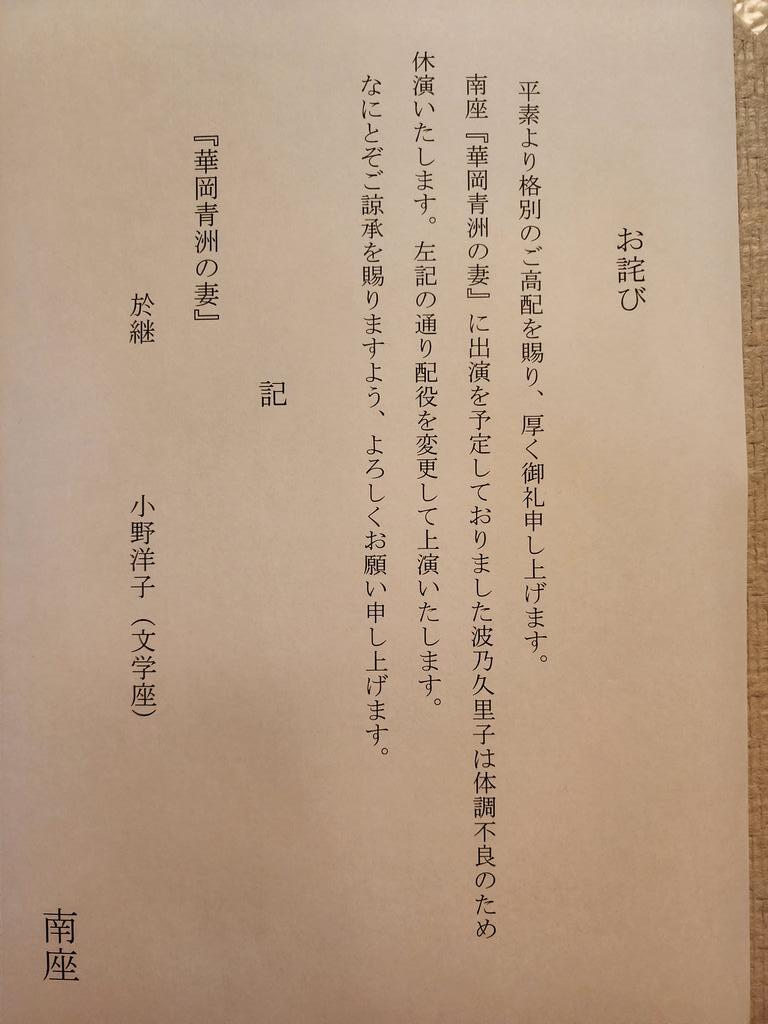 お詫び
平素より格別のご高配を賜り、厚く御礼申し上げます。
南座『華岡青洲の妻』に出演を予定しておりました波乃久里子は体調不良のため
休演いたします。左記の通り配役を変更して上演いたします。
なにとぞご諒承を賜りますよう、よろしくお願い申し上げます。
記
『華岡青洲の妻』
於継　小野洋子（文学座）
南座